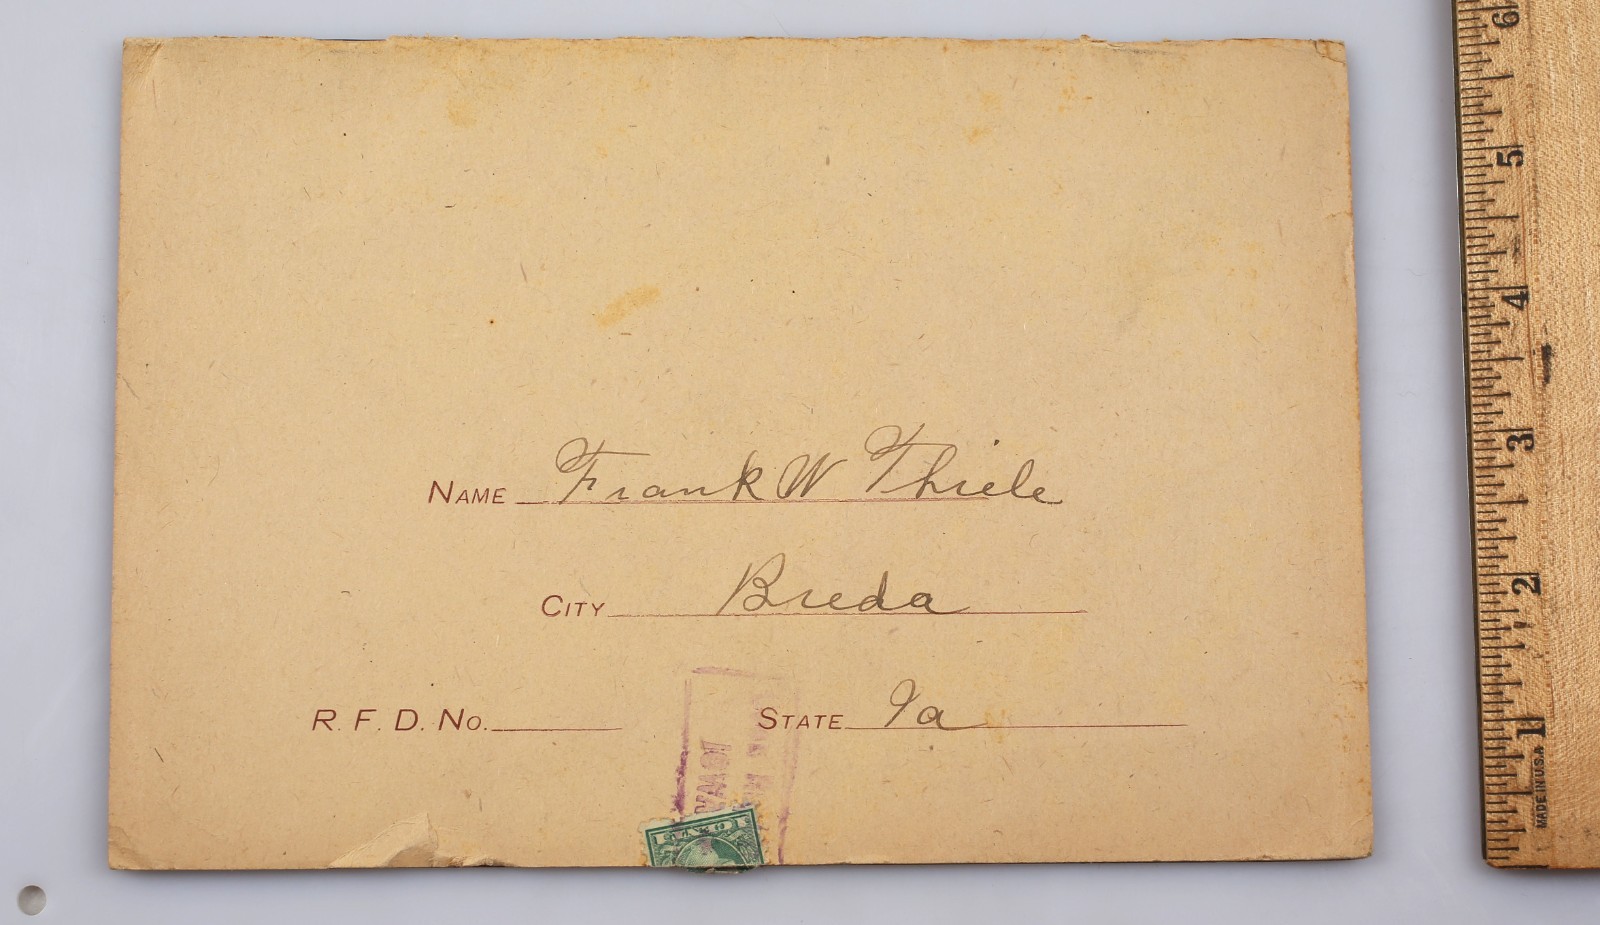 NAME Frank W Thiele
CITY Breda
R. F. D. NO. STATE Ia
IOWA
1 CENT 1
6
5
4
3
2
1
MADE IN U.S.A